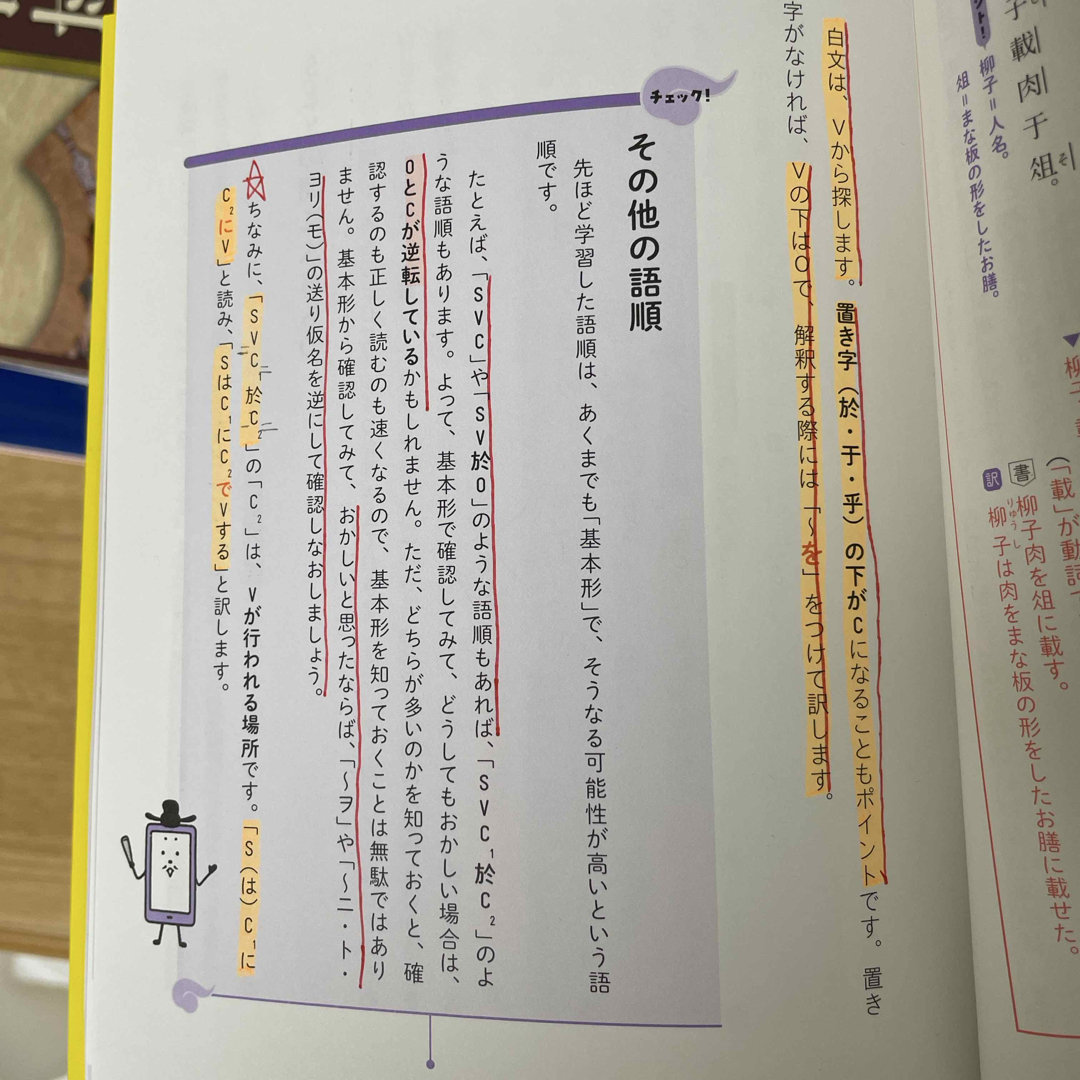 子載肉于俎。
そ
ント!
柳子=人名。
俎=まな板の形をしたお膳。
(「載」が動詞
書
柳子肉を俎に載す。
りゅうし
訳
柳子は肉をまな板の形をしたお膳に載せた。
白文は、Vから探します。置き字(於・于・乎)の下がCになることもポイントです。置き
字がなければ、Vの下はOで、解釈する際には「~を」をつけて訳します。
チェック!
その他の語順
先ほど学習した語順は、あくまでも「基本形」で、そうなる可能性が高いという語
順です。
たとえば、「SVC」や「SV於O」のような語順もあれば、「SVC₁於C₂」のよ
うな語順もあります。よって、基本形で確認してみて、どうしてもおかしい場合は、
OとCが逆転しているかもしれません。ただ、どちらが多いのかを知っておくと、確
認するのも正しく読むのも速くなるので、基本形を知っておくことは無駄ではあり
ません。基本形から確認してみて、おかしいと思ったならば、「~ヲ」や「~ニ・ト・
ヨリ(モ)」の送り仮名を逆にして確認しなおしましょう。
ちなみに、「SVC₁於C₂」の「C₂」は、Vが行われる場所です。「S(は)C₁に
C₂にV」と読み、「SはC₁にC₂でVする」と訳します。